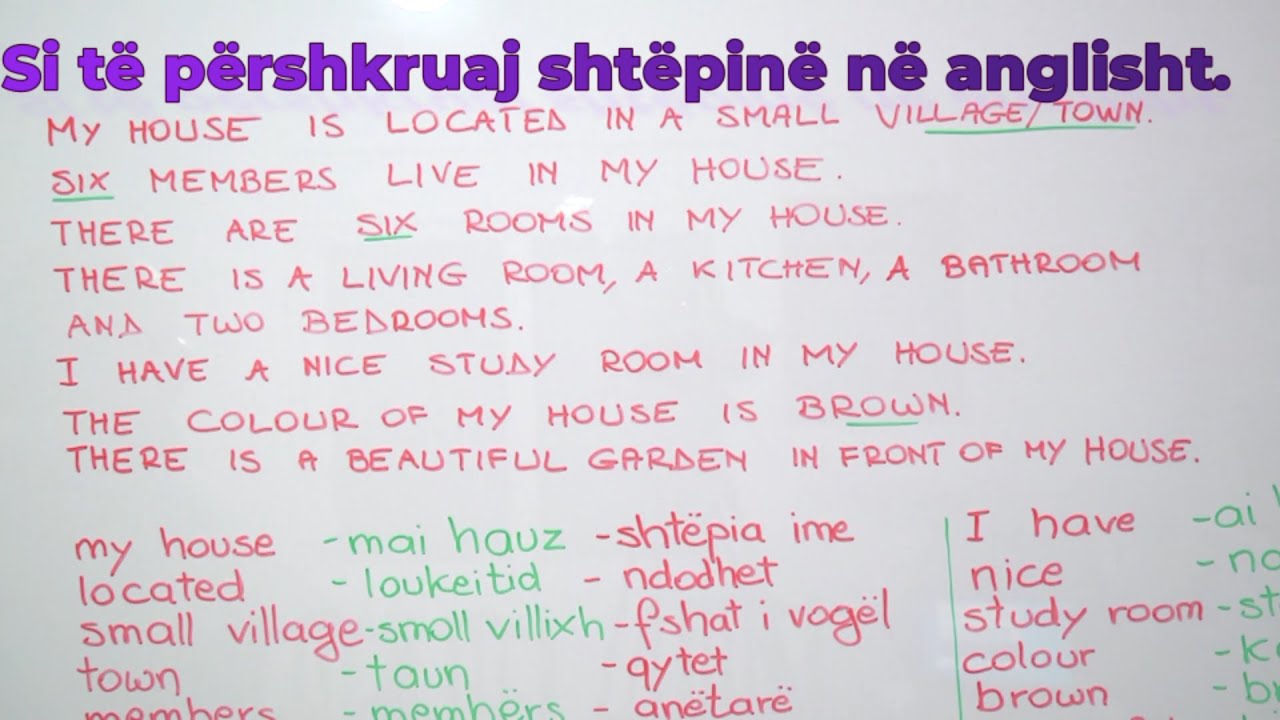 Si të përshkruaj shtëpinë në anglisht.
MY HOUSE IS LOCATED IN A SMALL VILLAGE/TOWN.
SIX MEMBERS LIVE IN MY HOUSE.
THERE ARE SIX ROOMS IN MY HOUSE.
THERE IS A LIVING ROOM, A KITCHEN, A BATHROOM
AND TWO BEDROOMS.
I HAVE A NICE STUDY ROOM IN MY HOUSE.
THE COLOUR OF MY HOUSE IS BROWN.
THERE IS A BEAUTIFUL GARDEN IN FRONT OF MY HOUSE.
my house - mai hauz - shtëpia ime
located - loukeitid - ndodhet
small village - smoll villixh - fshat i vogël
town - taun - qytet
members - membërs - anëtarë
I have - ai
nice
study room
colour
brown